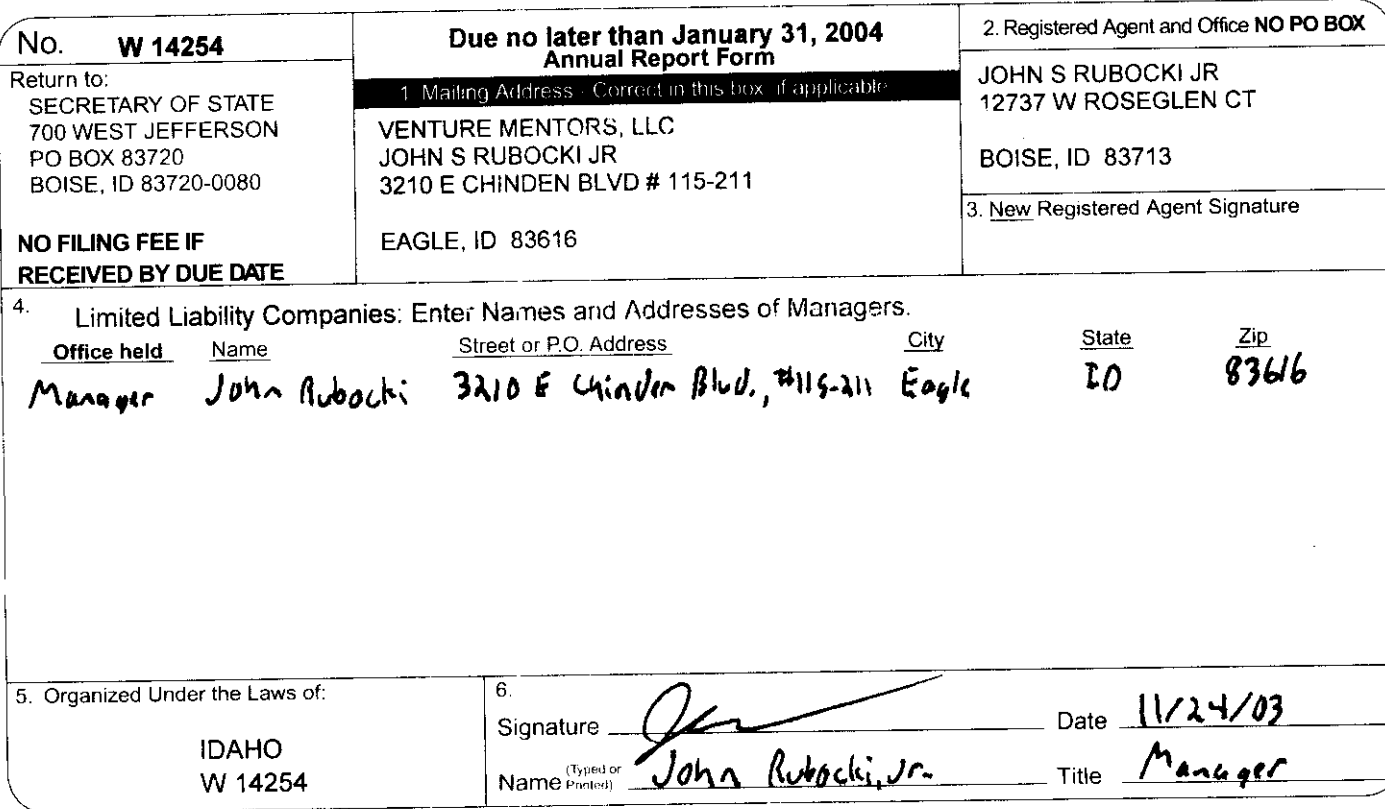 No. W 14254
Return to:
SECRETARY OF STATE
700 WEST JEFFERSON
PO BOX 83720
BOISE, ID 83720-0080
NO FILING FEE IF
RECEIVED BY DUE DATE
Due no later than January 31, 2004
Annual Report Form
1. Mailing Address - Correct in this box if applicable
VENTURE MENTORS, LLC
JOHN S RUBOCKI JR
3210 E CHINDEN BLVD # 115-211
EAGLE, ID 83616
2. Registered Agent and Office NO PO BOX
JOHN S RUBOCKI JR
12737 W ROSEGLEN CT
BOISE, ID 83713
3. New Registered Agent Signature
4. Limited Liability Companies: Enter Names and Addresses of Managers.
Office held Name Street or P.O. Address City State Zip
Manager John Rubocki 3210 E Chinden Blvd., #115-211 Eagle ID 83616
5. Organized Under the Laws of:
IDAHO
W 14254
6.
Signature Date 11/24/03
Name (Typed or Printed) John Rubocki, Jr. Title Manager